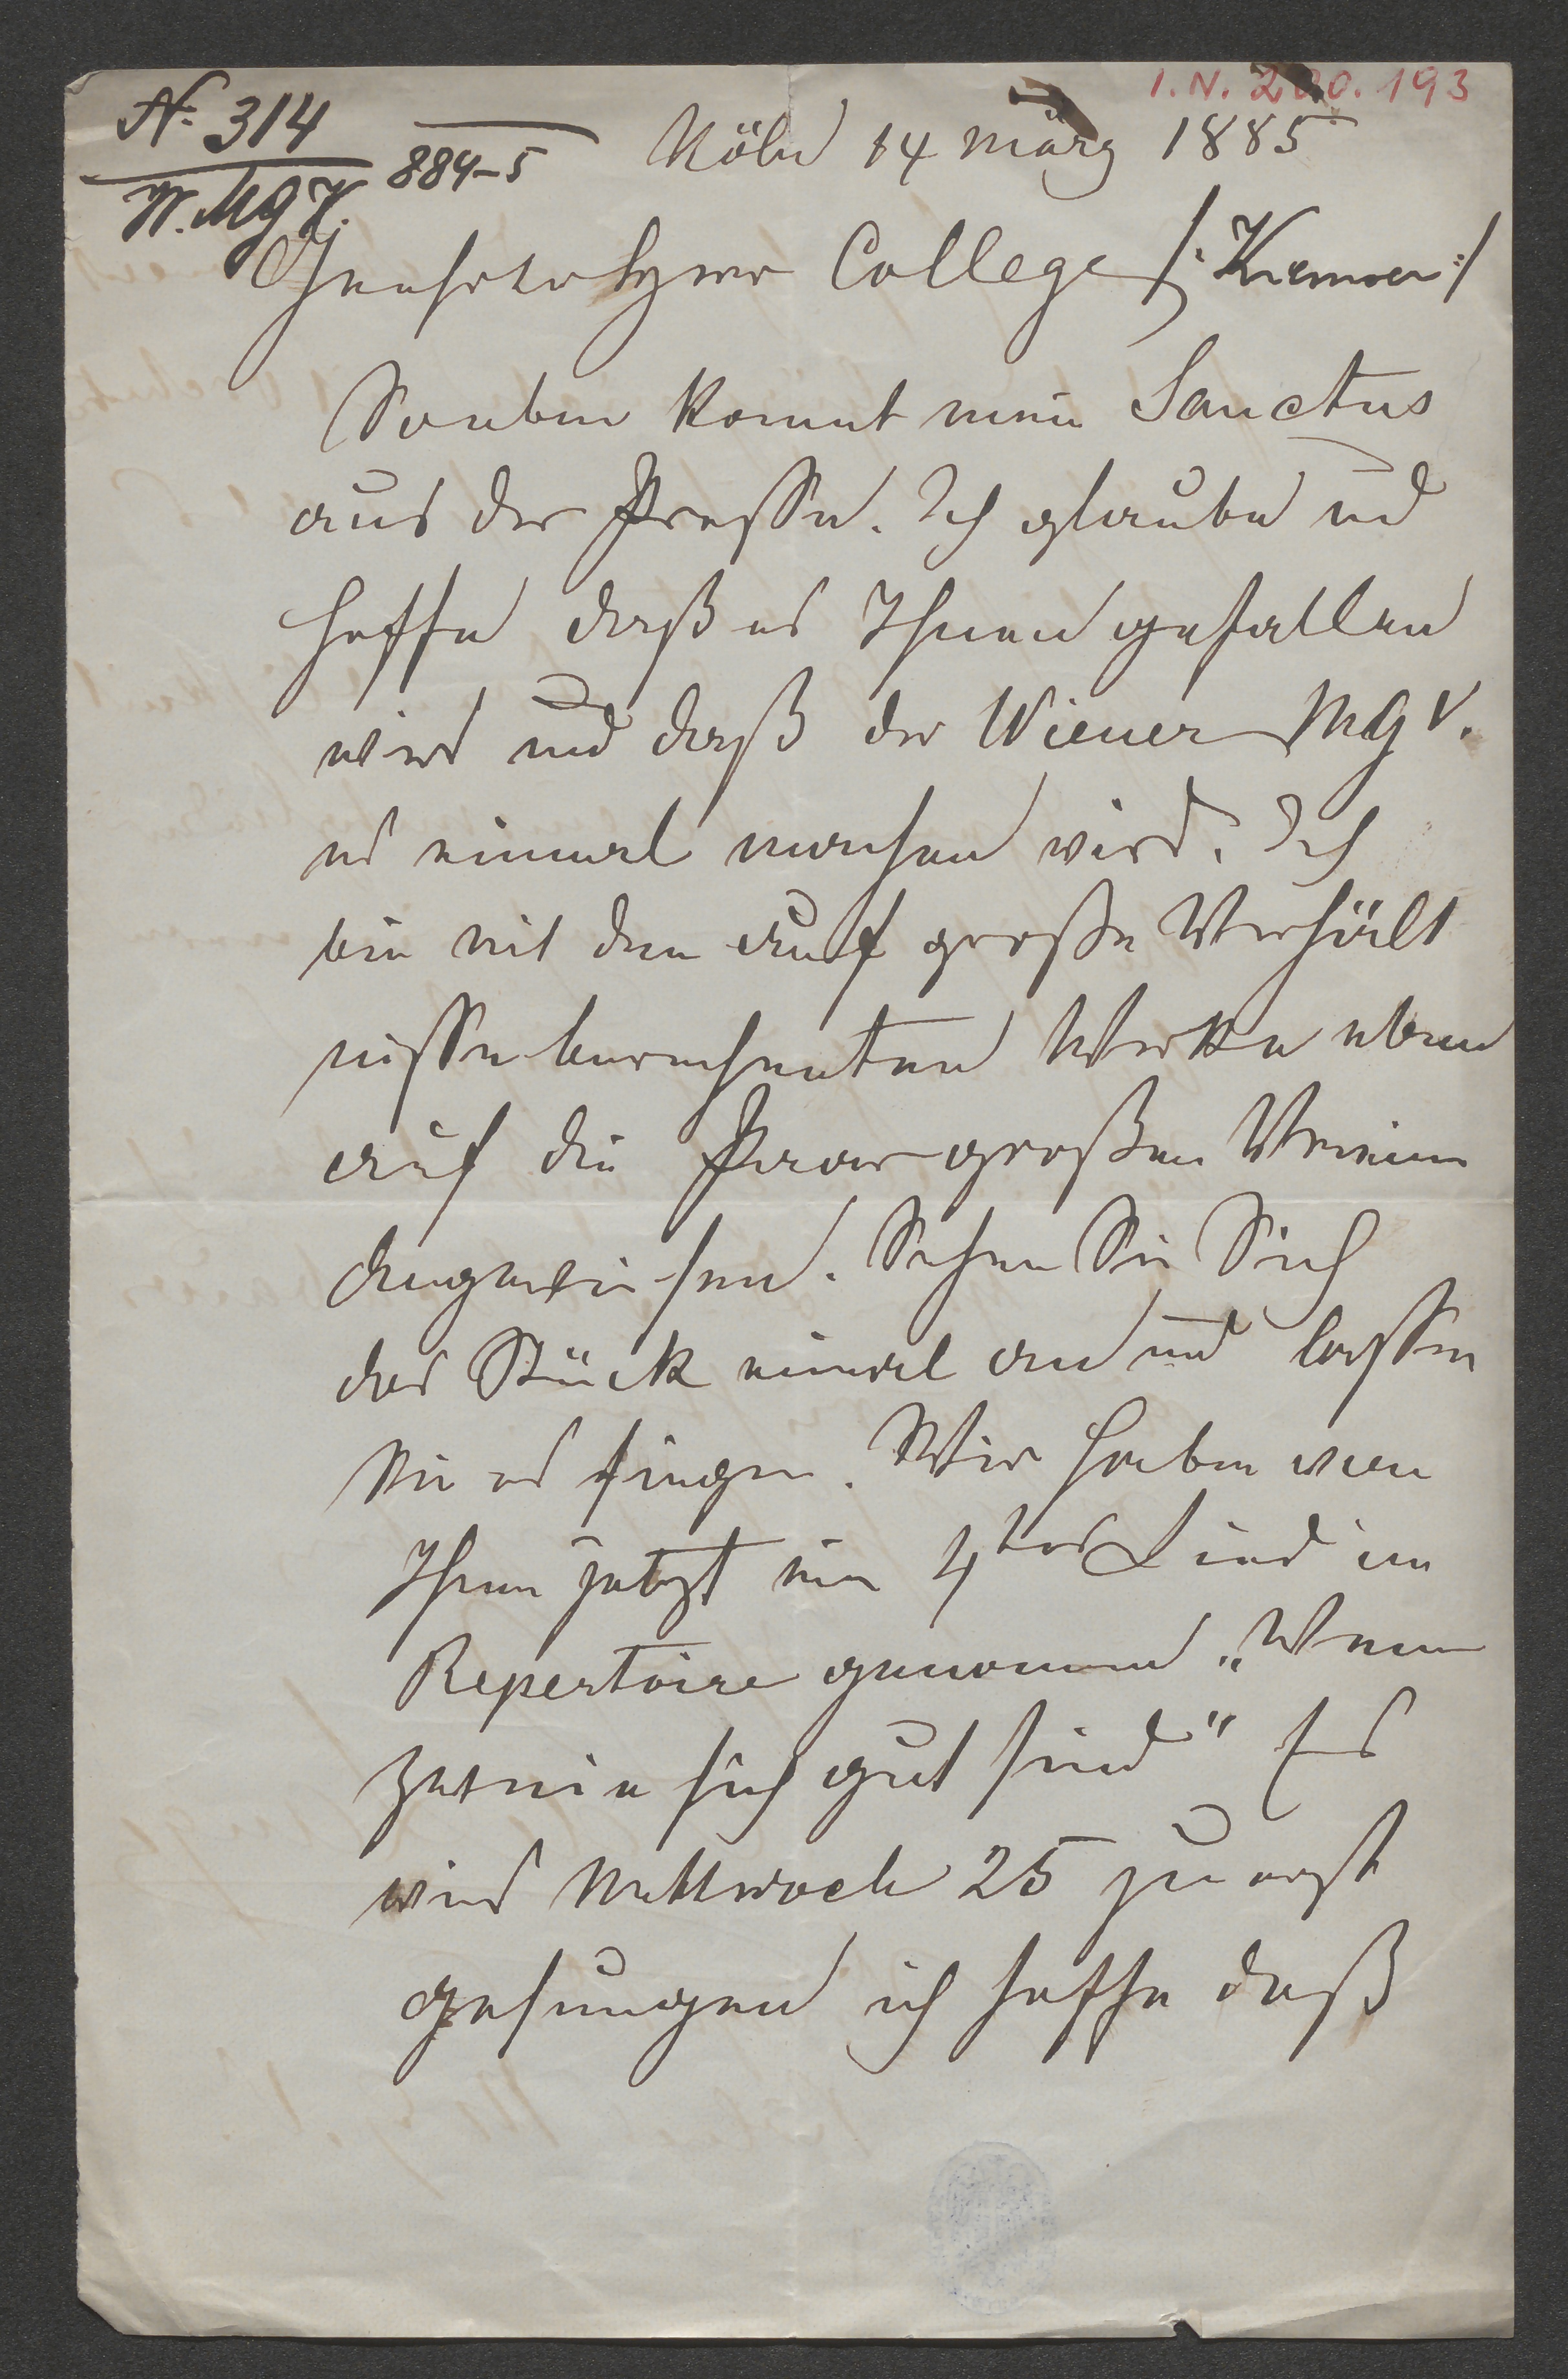 I.N. 200.193
N. 314
W. MgV. 884-5
Köln 14 März 1885
Geehrtester College /: Kremser :/
Soeben kommt mein Sanctus
aus der Presse. Ich glaube und
hoffe daß es Ihnen gefallen
wird und daß der Wiener MGV.
es einmal machen wird. Ich
bin mit dem auf große Verhält
nisse berechneten Werke eben
auf die Paar großen Vereine
angewiesen. Sehen Sie Sich
das Stück einmal an und lassen
Sie es singen. Wir haben von
Ihnen jetzt ein 4tes Lied im
Repertoire genommen „Wenn
Zweie sich gut sind" Es
wird Mittwoch 25 zuerst
gesungen ich hoffe daß